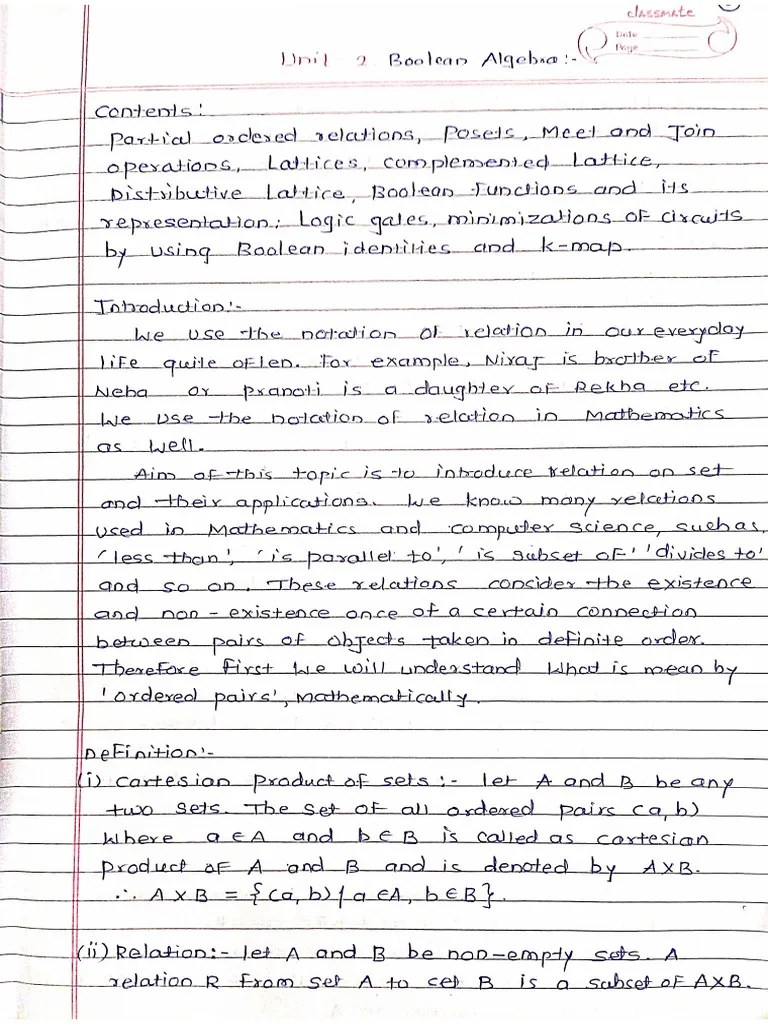 classmate
Date
Page
Unit 2 Boolean Algebra:-
Contents:
Partial ordered relations, Posets, Meet and Join
operations, Lattices, complemented Lattice,
Distributive Lattice, Boolean Functions and its
representation. Logic gates, minimizations of circuits
by using Boolean identities and k-map.
Introduction:-
We use the notation of relation in our everyday
life quite often. For example, Niraj is brother of
Neha or Pranoti is a daughter of Rekha etc.
We use the notation of relation in Mathematics
as well.
Aim of this topic is to introduce relation on set
and their applications. We know many relations
used in Mathematics and computer science, such as,
'less than', 'is parallel to', 'is subset of' 'divides to'
and so on. These relations consider the existence
and non-existence once of a certain connection
between pairs of objects taken in definite order.
Therefore first we will understand What is mean by
'ordered pairs', Mathematically.
Definition:-
(i) Cartesian product of sets:- let A and B be any
two sets. The set of all ordered pairs (a,b)
Where a ∈ A and b ∈ B is called as cartesian
product of A and B and is denoted by A×B.
∴ A × B = {(a, b) / a ∈ A, b ∈ B}.
(ii) Relation:- let A and B be non-empty sets. A
relation R from set A to set B is a subset of A×B.